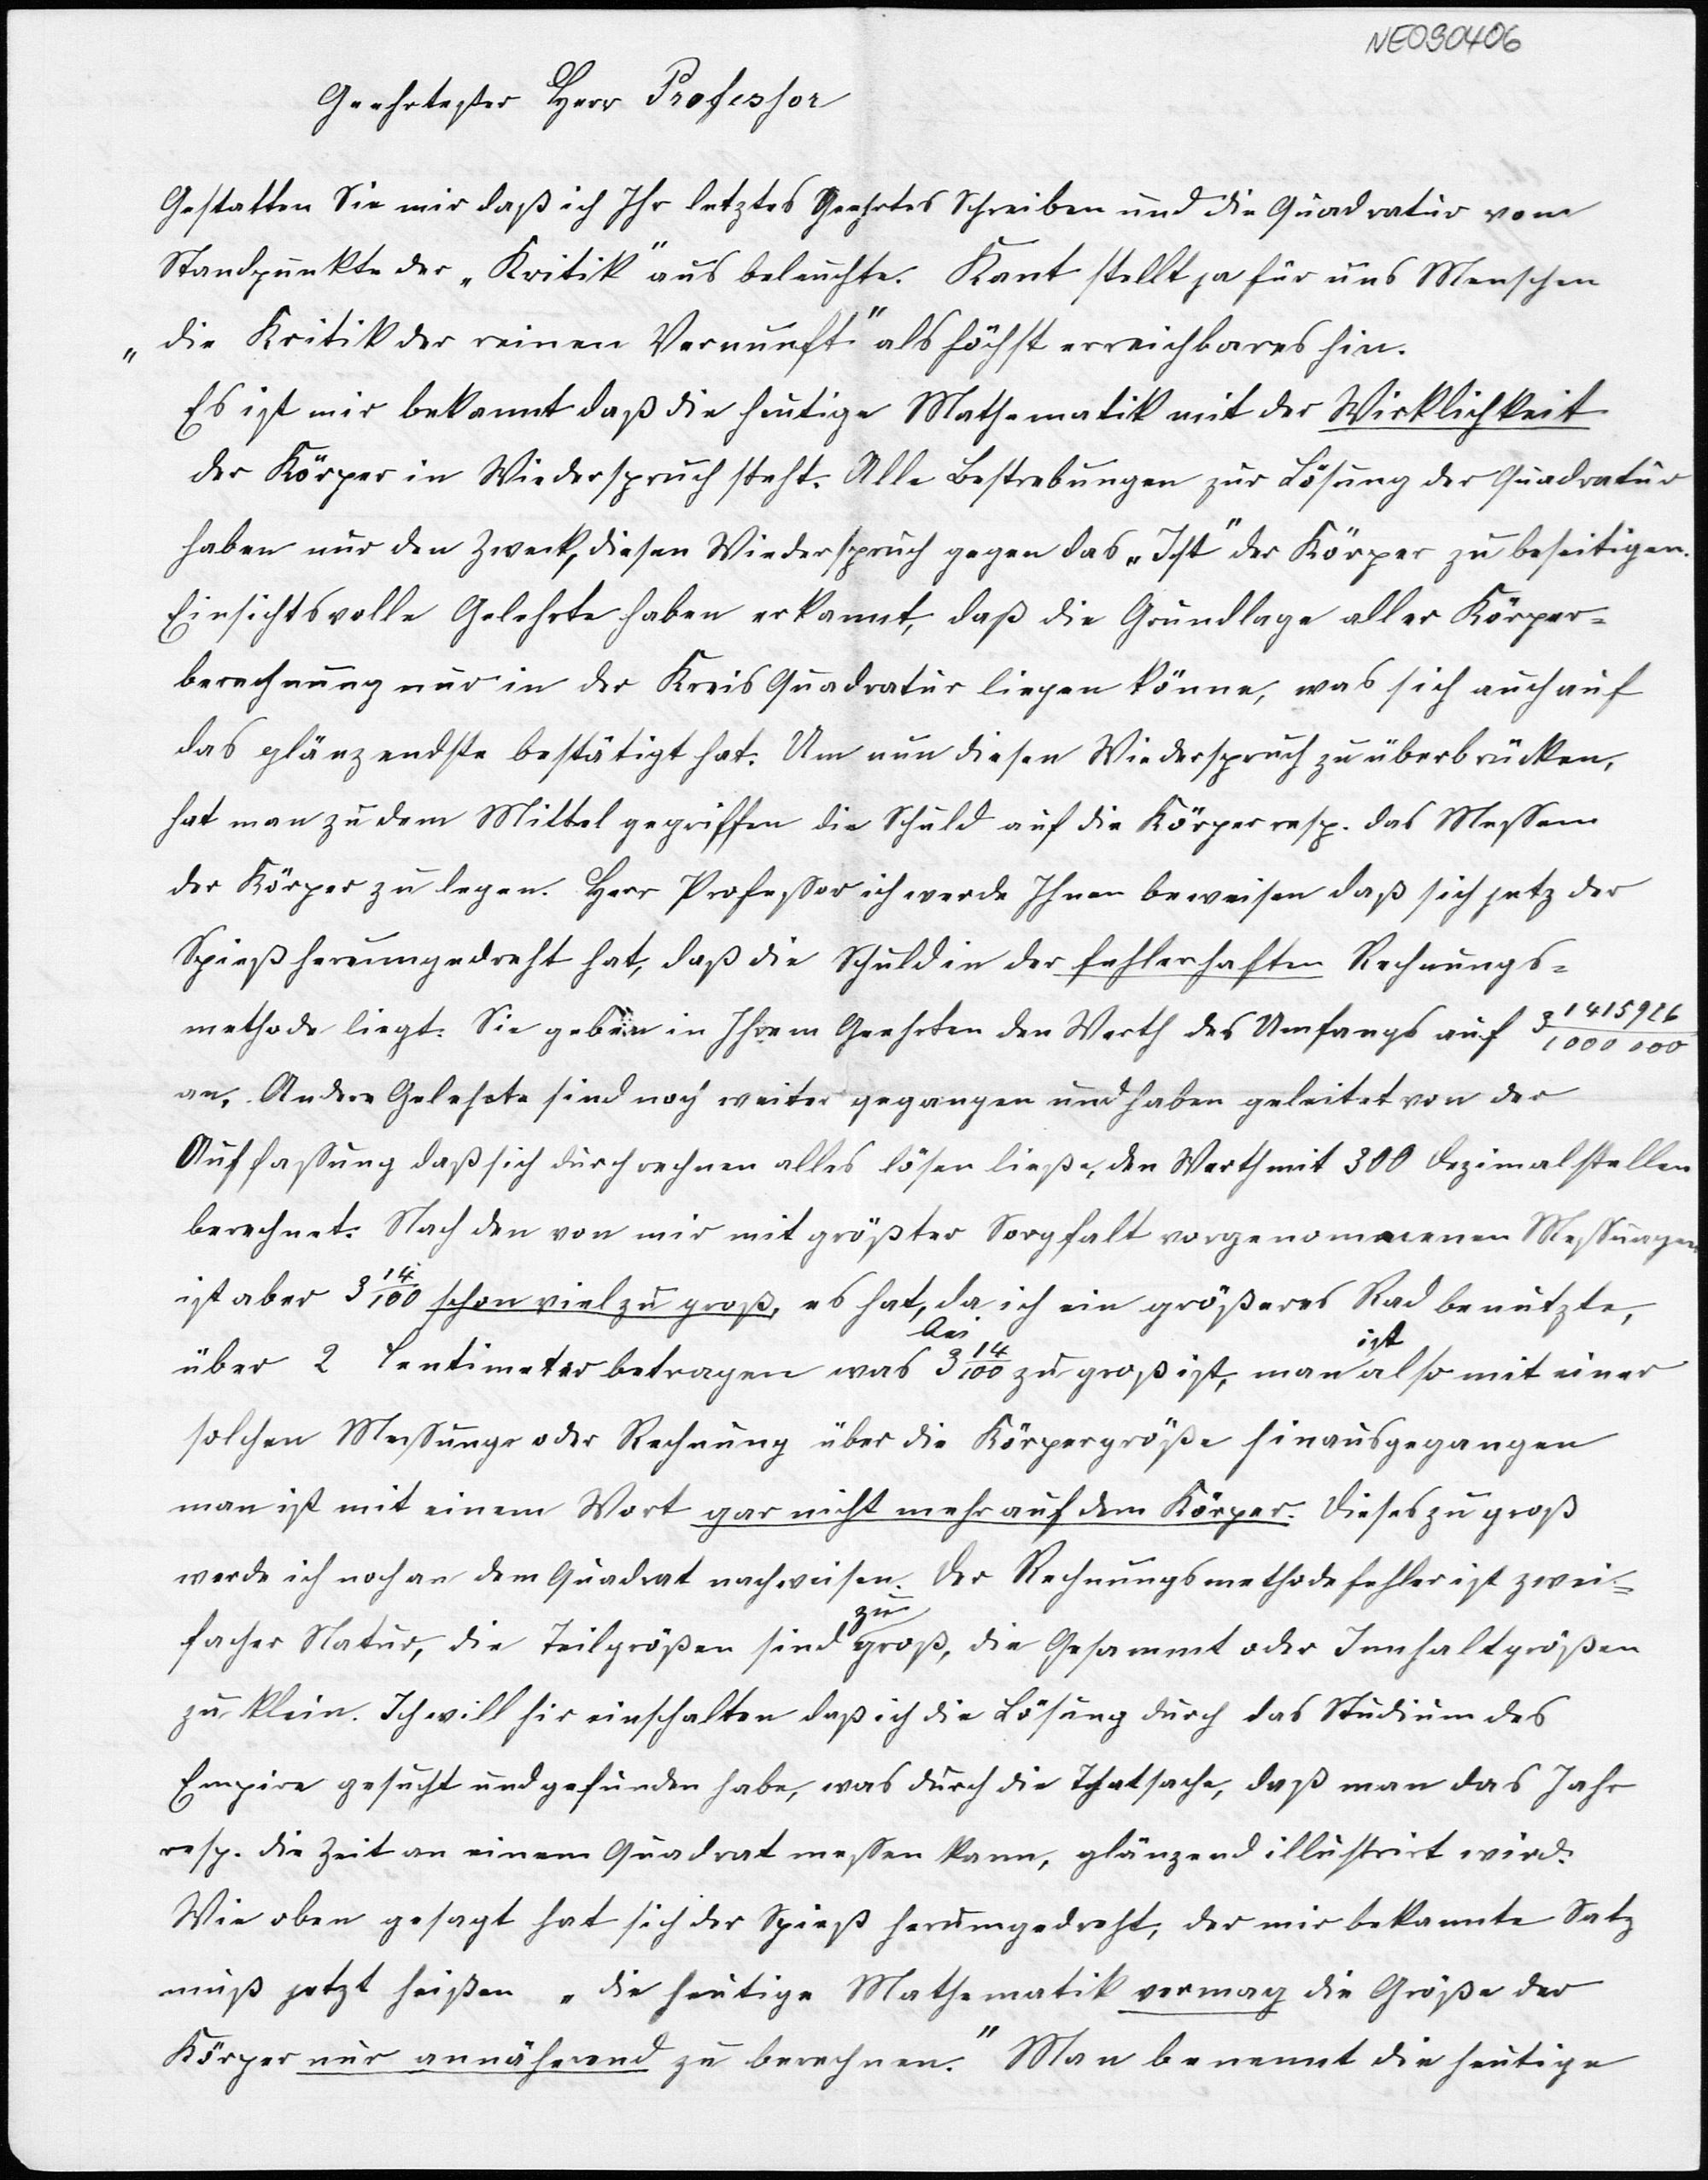 NE090406
Geehrtester Herr Professor
Gestatten Sie mir daß ich Ihr letztes Geehrtes Schreiben und die Quadratur vom
Standpunkte der „Kritik" aus beleuchte. Kant stellt ja für uns Menschen
„die Kritik der reinen Vernunft" als höchst erreichbares hin.
Es ist mir bekannt daß die heutige Mathematik mit der Wirklichkeit
der Körper in Wiederspruch steht. Alle Bestrebungen zur Lösung der Quadratur
haben nur den Zweck, diesen Wiederspruch gegen das „Ist" der Körper zu beseitigen.
Einsichtsvolle Gelehrte haben erkannt, daß die Grundlage aller Körper=
berechnung nur in der Kreis Quadratur liegen könne, was sich auch auf
das glänzendste bestätigt hat. Um nun diesen Wiederspruch zu überbrücken,
hat man zu dem Mittel gegriffen die Schuld auf die Körper resp. das Messen
der Körper zu legen. Herr Professor ich werde Ihnen beweisen daß sich jetz der
Spieß herumgedreht hat, daß die Schuld in der fehlerhaften Rechnungs=
methode liegt. Sie geben in Ihrem Geehrten den Werth des Umfangs auf 3 1415926/1000 000
an. Andere Gelehrte sind noch weiter gegangen und haben geleitet von der
Auffassung daß sich durch rechnen alles lösen ließe, den Werth mit 300 Dezimalstellen
berechnet. Nach den von mir mit größter Sorgfalt vorgenommenen Messungen
ist aber 3 14/100 schon viel zu groß, es hat, da ich ein größeres Rad benutzte,
über 2 Centimeter betragen was bei 3 14/100 zu groß ist, man ist also mit einer
solchen Messunge oder Rechnung über die Körpergröße hinausgegangen
man ist mit einem Wort gar nicht mehr auf dem Körper. Dieses zu groß
werde ich noch an dem Quadrat nachweisen. Der Rechnungsmethodefehler ist zwei=
facher Natur, die Teilgrößen sind zu groß, die Gesammt oder Innhaltgrößen
zu klein. Ich will hir einschalten daß ich die Lösung durch das Studium des
Empire gesucht und gefunden habe, was durch die Thatsache, daß man das Jahr
resp. die Zeit an einem Quadrat messen kann, glänzend illustrirt wird.
Wie oben gesagt hat sich der Spieß herumgedreht, der mir bekannte Satz
muß jetzt heißen „die heutige Mathematik vermag die Größe der
Körper nur annähernd zu berechnen." Man benennt die heutige